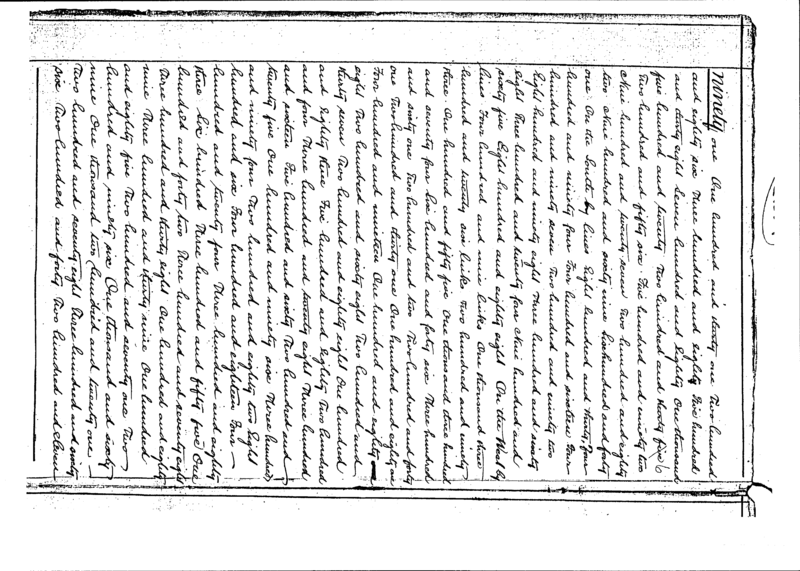 Ninety one One hundred and twenty one Two hundred
and eighty six Three hundred and eighty Five hundred
and thirty eight Seven hundred and Eighty One thousand
five hundred and twenty Two hundred and ninety five 6
Two hundred and fifty six Five hundred and ninety two
Nine hundred and twenty seven Two hundred and eighty
two Nine hundred and sixty nine Six hundred and forty
one On the South by lines Eight hundred and thirty four
hundred and ninety four Four hundred and sixteen Four
hundred and ninety seven Two hundred and ninety two
Eight hundred and ninety eight Three hundred and ninety
eight Three hundred and twenty four Nine hundred and
sixty five Eight hundred and eighty eight On the West by
lines Four hundred and nine links One thousand three
hundred and twenty six links Two hundred and ninety
three One hundred and fifty five One thousand three hundred
and seventy four Six hundred and forty six Three hundred
and sixty one Two hundred and two Two hundred and forty
one Two hundred and thirty one One hundred and eighty one
Four hundred and nineteen One hundred and eighty
eight Two hundred and sixty eight Two hundred and
thirty seven Two hundred and eighty eight One hundred
and Eighty three Five hundred and Eighty Two hundred
and four Three hundred and twenty eight Three hundred
and sixteen Five hundred and sixty Two hundred and
twenty five One hundred and ninety six Three hundred
and ninety four Two hundred and eighty two Eight
hundred and six Four hundred and eighteen Five
hundred and twenty four Three hundred and eighty
three Six hundred Three hundred and fifty five One
hundred and forty two Three hundred and seventy eight
Three hundred and thirty eight One hundred and eighty
nine Three hundred and thirty nine One hundred
and eighty five Two hundred and seventy one Two
hundred and ninety six One thousand and sixty
nine One thousand two hundred and twenty one
Two hundred and seventy eight Three hundred and ninety
five Two hundred and forty Two hundred and eleven